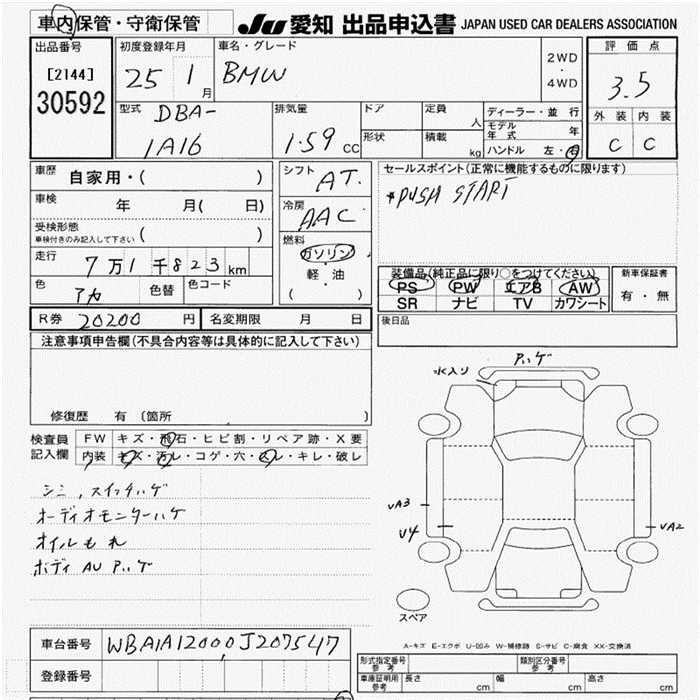 車内保管・守衛保管
JU 愛知 出品申込書 JAPAN USED CAR DEALERS ASSOCIATION
出品番号
[2144]
30592
初度登録年月
25 1月
車名・グレード
BMW
2WD
・
4WD
評価点
3.5
外装 内装
C C
型式
DBA-
1A16
排気量
1.59 CC
ドア
形状
定員 人
積載 kg
ディーラー・並行
モデル年式 年
ハンドル 左・右
車歴 自家用・( )
車検 年 月( 日)
受検形態
車検付きのみ記入して下さい ( )
走行 7万1千823km
色 アカ 色替 色コード
シフト AT.
冷房 AAC
燃料
ガソリン
・
軽・油
( )
セールスポイント(正常に機能するものに限ります)
*PUSH START
装備品(純正品に限り○をつけてください)
PS PW エアB AW
SR ナビ TV カワシート
新車保証書
有・無
後日品
R券 20200 円 名変期限 月 日
注意事項申告欄(不具合内容等は具体的に記入して下さい)
修復歴 有(箇所 )
検査員
記入欄
FW キズ・飛石・ヒビ割・リペア跡・X要
内装 キズ・汚レ・コゲ・穴・スレ・キレ・破レ
シミ、スイッチハゲ
オーディオモニターハゲ
オイルもれ
ボディAUアハゲ
水入り
UA3
U4
UA2
スペア
A-キズ E-エクボ U-凹み W-補修跡 S-サビ C-腐食 XX-交換済
車台番号 WBA1A12000J207547
登録番号
形式指定番号 参考
類別区分番号 参考
車庫証明用 参考 長さ cm 幅 cm 高さ cm